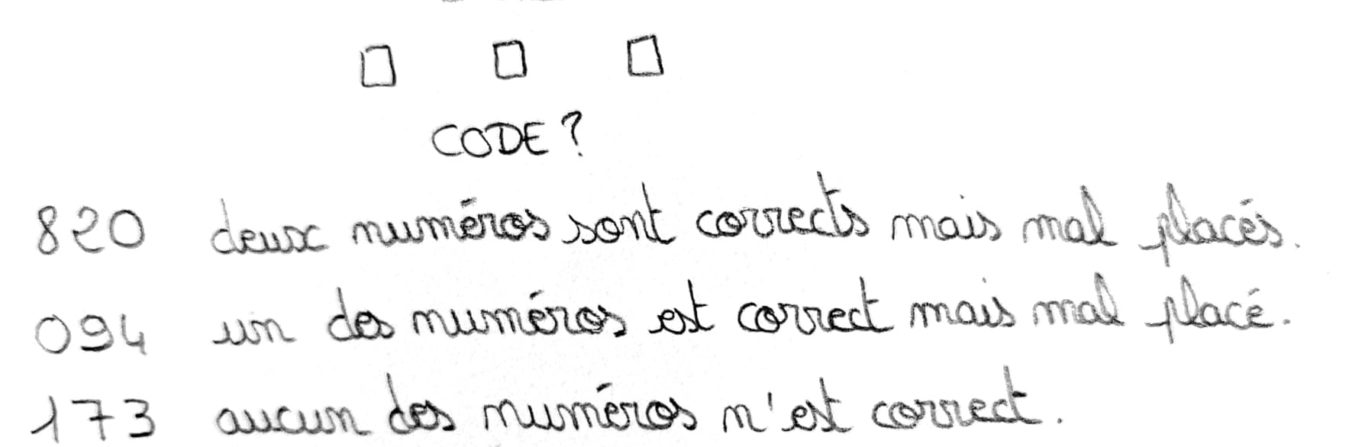 CODE?
820 deux numéros sont corrects mais mal placés.
094 un des numéros est correct mais mal placé.
173 aucun des numéros n'est correct.